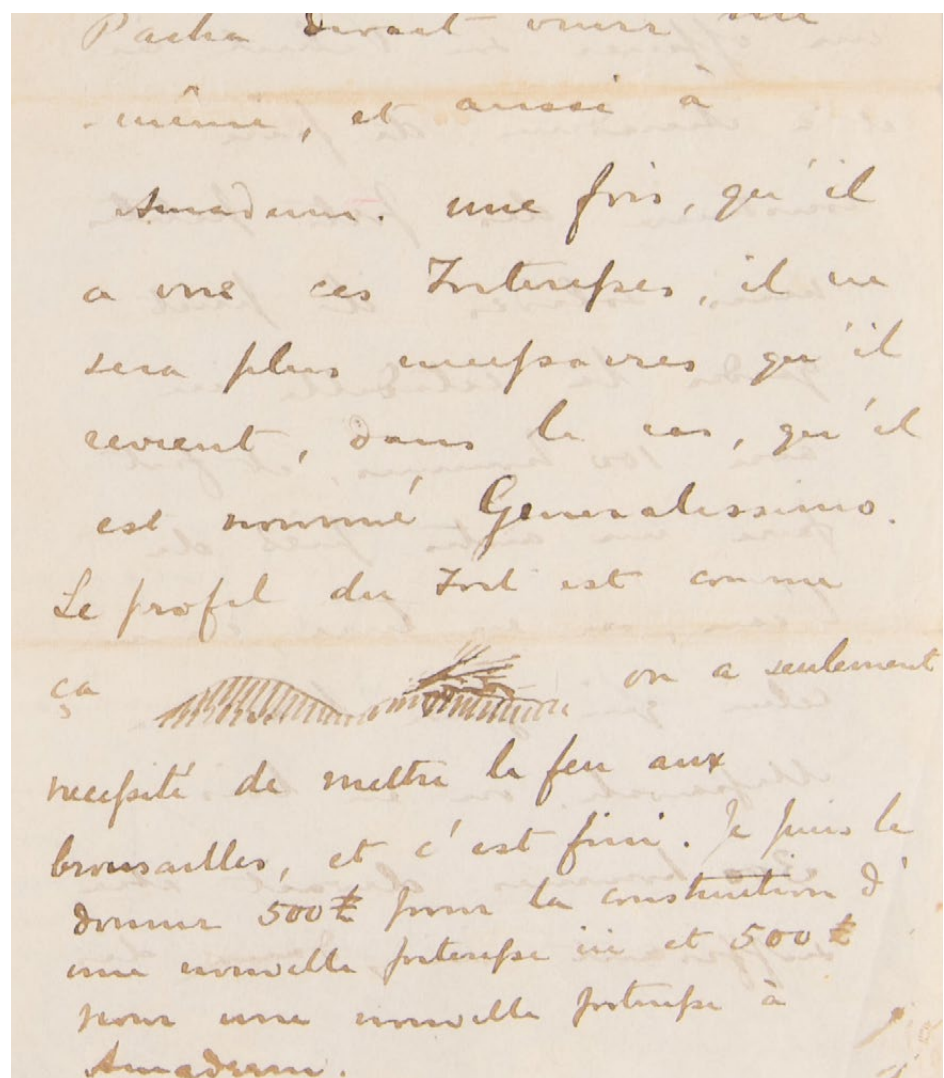 Pacha devait venir lui
même, et aussi à
Amadeum. une fois, qu'il
a vue ces Forteresses, il ne
sera plus necessaires qu'il
revient, dans le cas, qu'il
est nommé Generalissimo.
Le profil du Fort est comme
ça on a seulement
necessité de mettre le feu aux
brousailles, et c'est fini. Je puis le
donner 500 £ pour la construction d'
une nouvelle forteresse ici et 500 £
pour une nouvelle forteresse à
Amaderm.